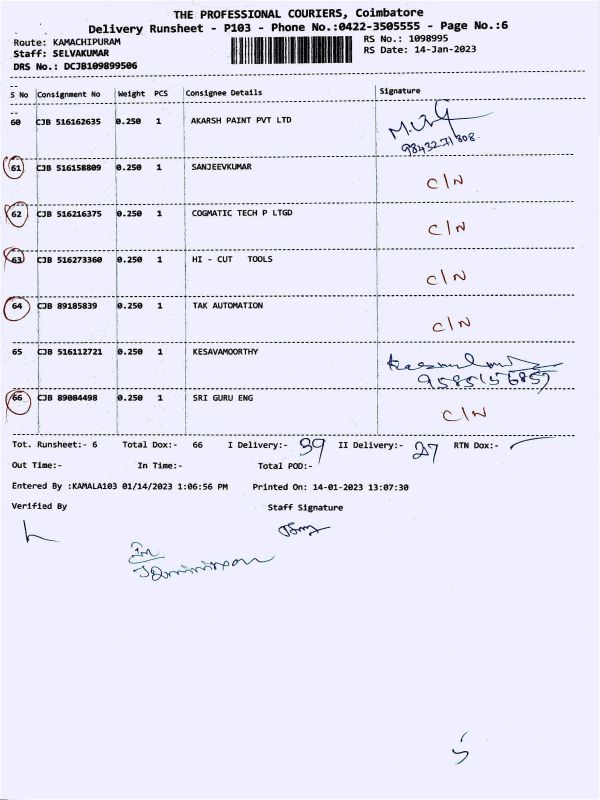 THE PROFESSIONAL COURIERS, Coimbatore
Delivery Runsheet - P103 - Phone No.:0422-3505555 - Page No.:6
Route: KAMACHIPURAM
RS No.: 1098995
Staff: SELVAKUMAR
RS Date: 14-Jan-2023
DRS No.: DCJB109899506
S No Consignment No Weight PCS Consignee Details Signature
60 CJB 516162635 0.250 1 AKARSH PAINT PVT LTD
9843271808
61 CJB 516158809 0.250 1 SANJEEVKUMAR C/N
62 CJB 516216375 0.250 1 COGMATIC TECH P LTGD C/N
63 CJB 516273360 0.250 1 HI - CUT TOOLS C/N
64 CJB 89185839 0.250 1 TAK AUTOMATION C/N
65 CJB 516112721 0.250 1 KESAVAMOORTHY
9585156857
66 CJB 89084498 0.250 1 SRI GURU ENG C/N
Tot. Runsheet:- 6 Total Dox:- 66 I Delivery:- 39 II Delivery:- 27 RTN Dox:-
Out Time:- In Time:- Total POD:-
Entered By :KAMALA103 01/14/2023 1:06:56 PM Printed On: 14-01-2023 13:07:30
Verified By Staff Signature